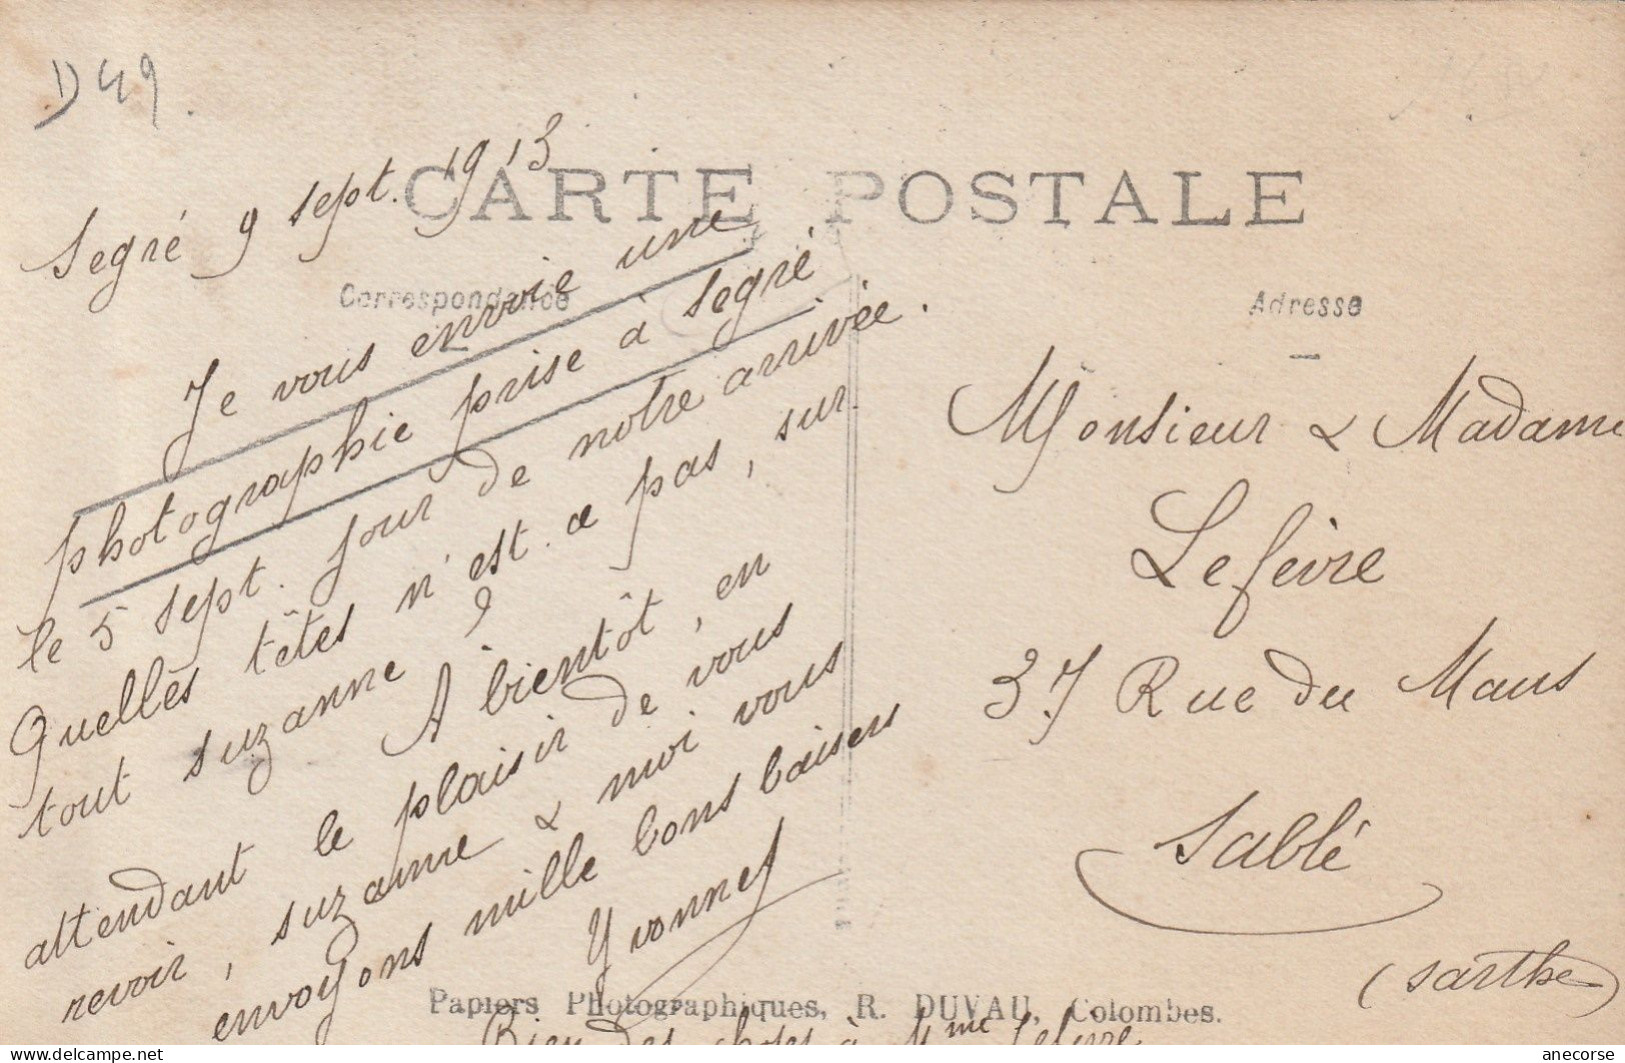 D49
CARTE POSTALE
Correspondance
Adresse
Segré 9 sept. 1913
Je vous envoie une
photographie prise à Segré
le 5 sept. jour de notre arrivée.
Quelles têtes n'est-ce pas, sur
tout suzanne ?
A bientôt, en
attendant le plaisir de vous
revoir, suzanne & moi vous
envoyons mille bons baisers
Yvonne
Bien des choses à Mme Lefèvre
Monsieur & Madame
Lefèvre
37 Rue du Mans
Sablé
(Sarthe)
Papiers Photographiques, R. DUVAU, Colombes.
delcampe.net
anecorse